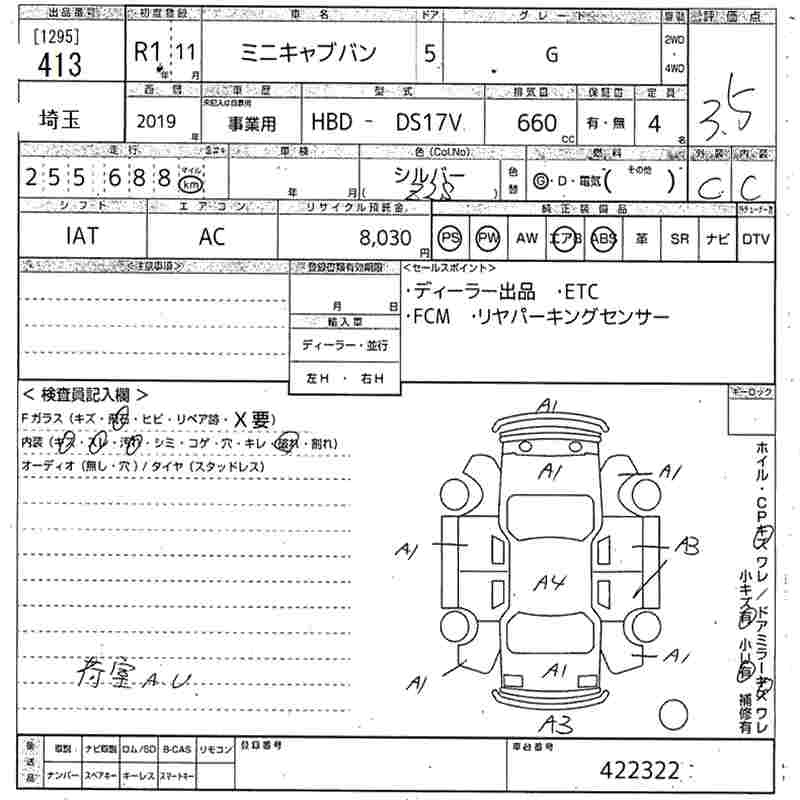 出品番号 初度登録 車名 ドア グレード 駆動 評価点
[1295] 413 R1年 11月 ミニキャブバン 5 G 2WD・4WD 3.5
西暦 車歴 型式 排気量 保証書 定員
未記入は自家用
埼玉 2019年 事業用 HBD - DS17V 660CC 有・無 4名
走行 車検 色(Col.No) 燃料 外装 内装
255,688 マイル km 年 月 シルバー 色替 G・D・電気( その他 ) C C
シフト エアコン リサイクル預託金 純正装備品
IAT AC 8,030円 PS PW AW エアB ABS 革 SR ナビ DTV
<注意事項> 登録書類有効期限 <セールスポイント>
月 日
・ディーラー出品 ・ETC
・FCM ・リヤパーキングセンサー
輸入車
ディーラー・並行
左H・右H
<検査員記入欄> キーロック
Fガラス(キズ・飛石・ヒビ・リペア跡・X要)
内装(キズ・スレ・汚れ・シミ・コゲ・穴・キレ・破れ・割れ)
オーディオ(無し・穴)/タイヤ(スタッドレス)
A1
A1 A1
A1 A3
A4
A1 A1 A1
A3
荷室A.U
ホイル・CPキズワレ/ドアミラーキズワレ
小キズ有 小U有 補修有
後送品 取説 ナビ取説 ロム/SD B-CAS リモコン 登録番号 車台番号
ナンバー スペアキー キーレス スマートキー 422322